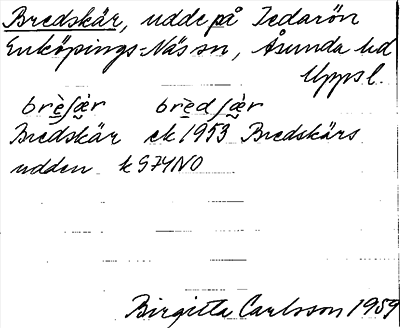 Bredskär, udde på Tedarön
Enköpings-Näs sn, Åsunda hd
Uppsl.
brèʃæ̀r bred ʃæ̀r
Bredskär ek 1953 Bredskärs
udden k 974NO
Birgitta Carlsson 1959